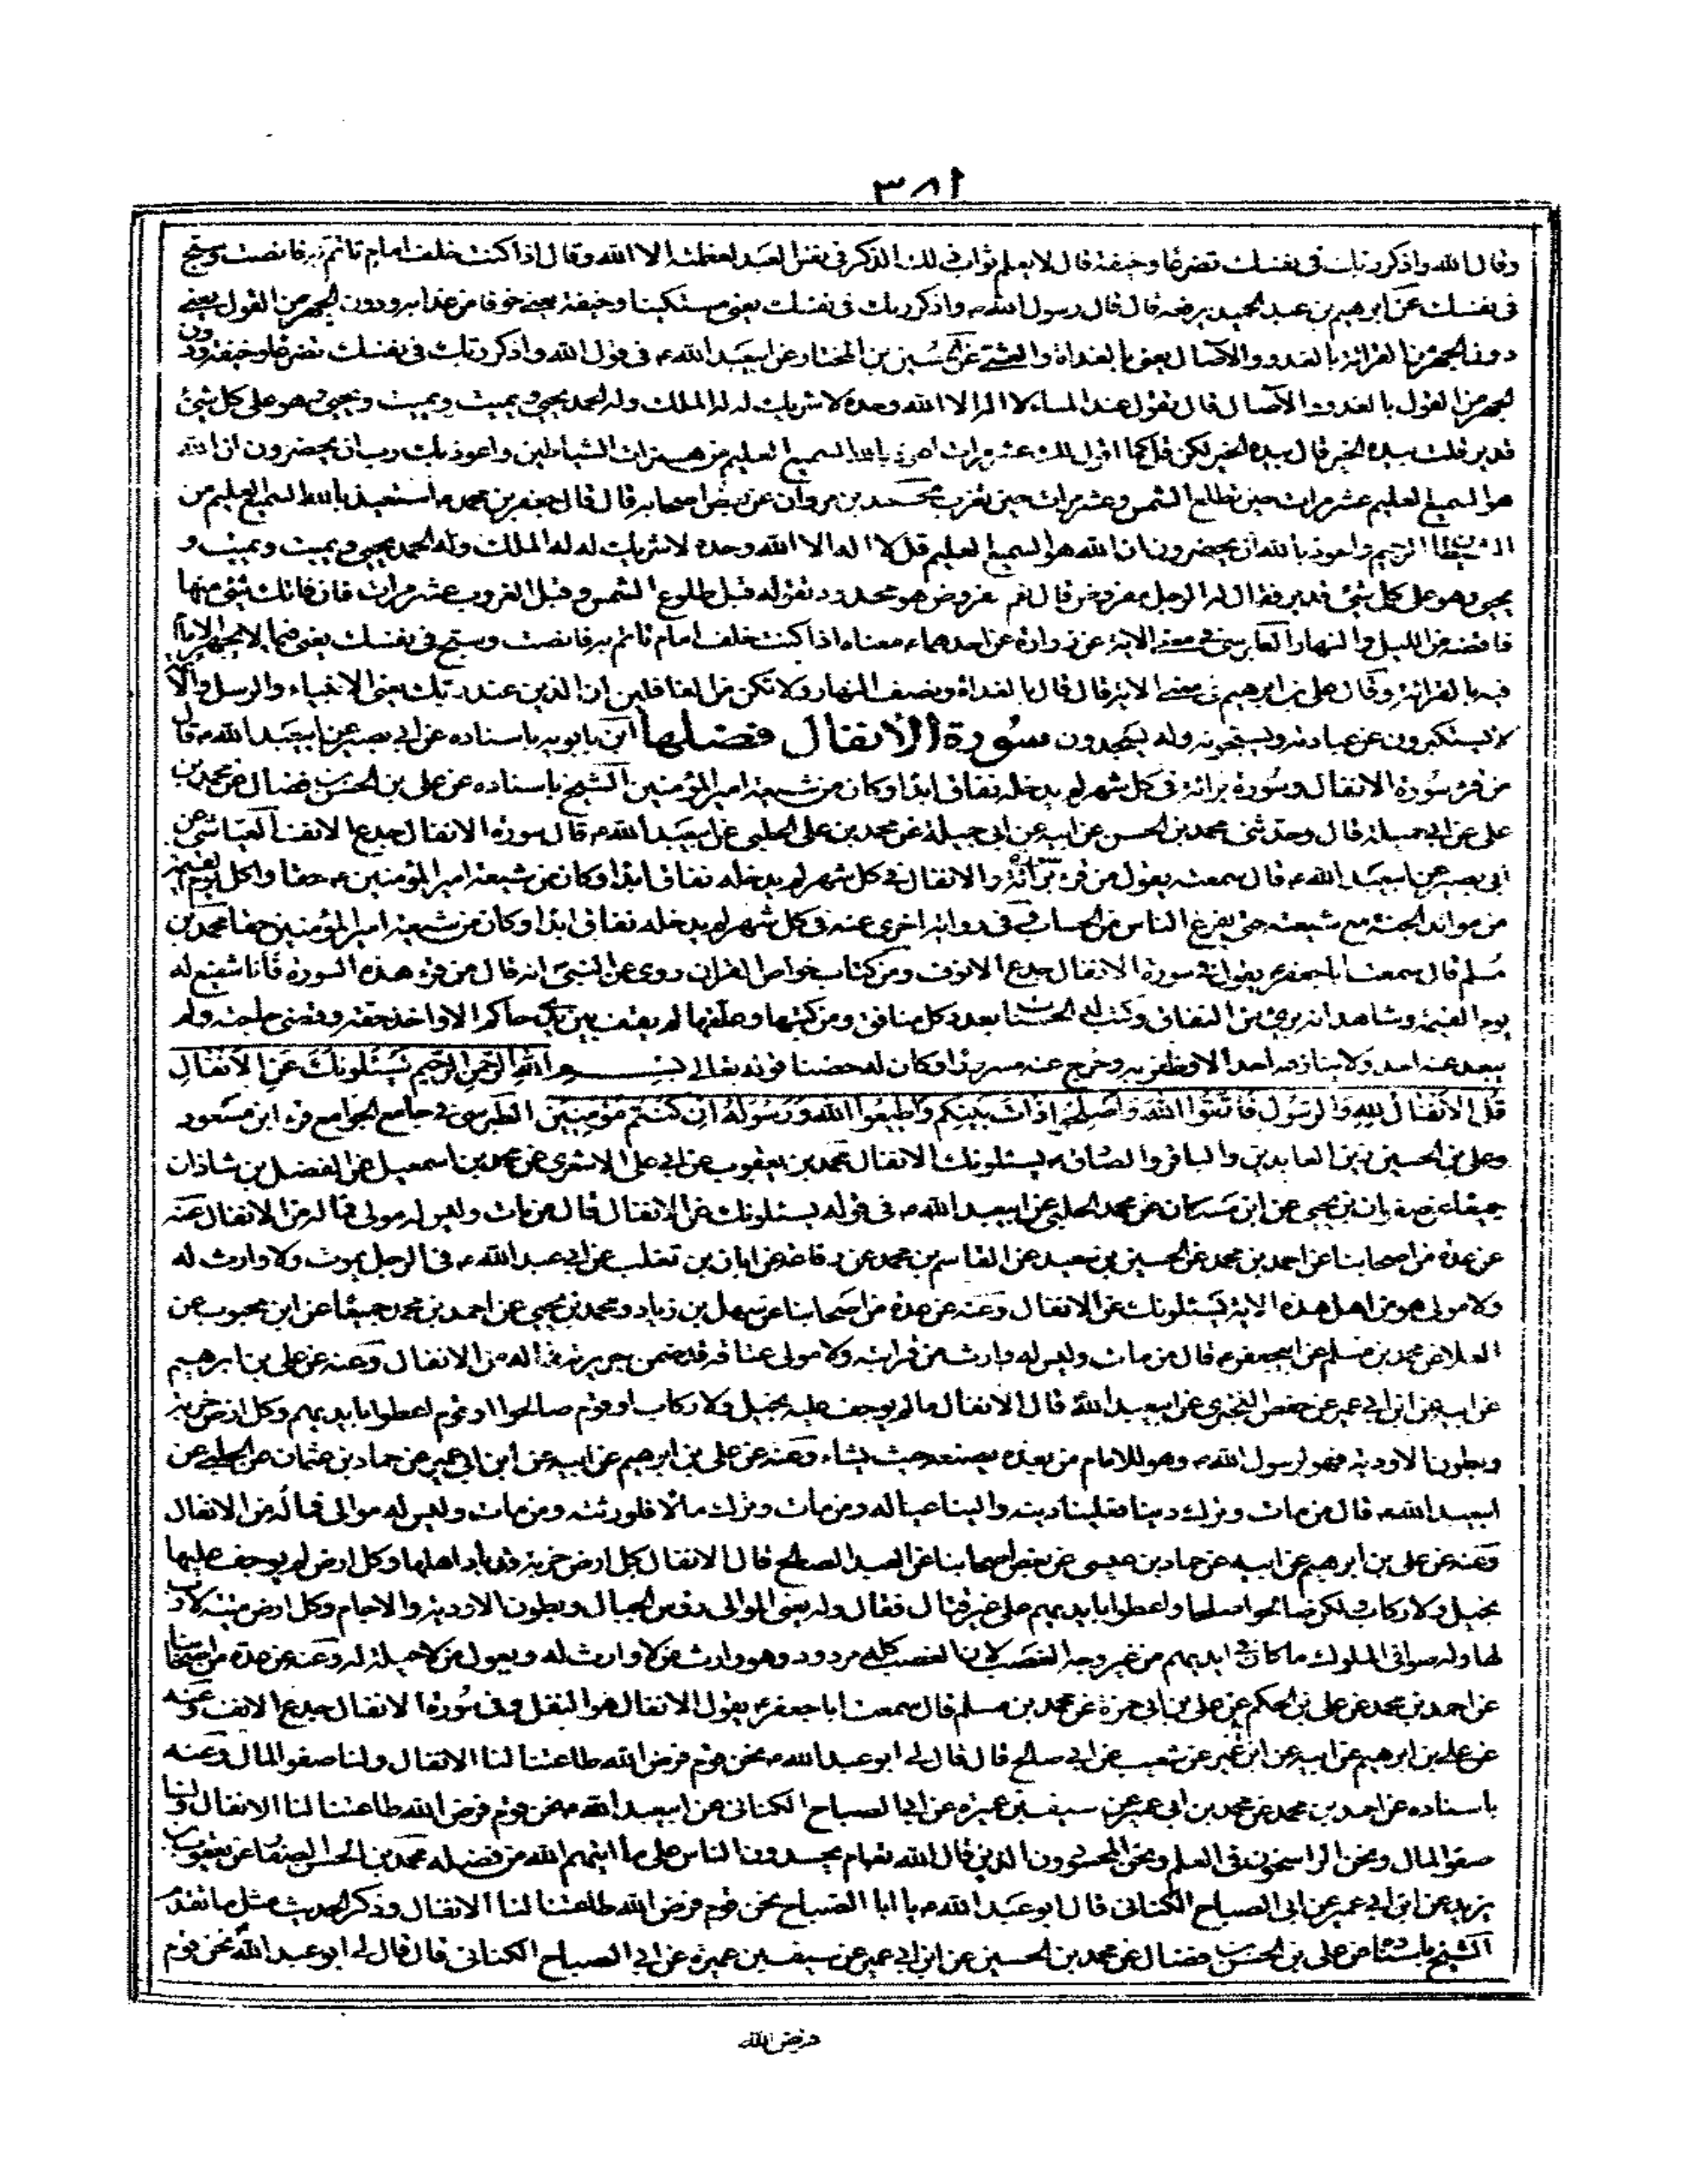 ٣٨١
وقال الله واذكر ربك فى نفسك تضرعا وخيفة قال لا يعلم ثواب ذلك الذكر فى نفس العبد لعظمته الا الله وقال اذا كنت خلف امام تاتم به فانصت وسبح
فى نفسك عن ابرهيم بن عبد الحميد يرفعه قال قال رسول الله ص واذكر ربك فى نفسك يعنى مستكينا وخيفة يعنى خوفا من عذابه ودون الجهر من القول يعنى
دون الجهر من القرائة بالغدو والاصال يعنى بالغداة والعشى عن الحسين بن المختار عن ابيعبد الله ع فى قول الله واذكر ربك فى نفسك تضرعا وخيفة ودون
الجهر من القول بالغدو والآصال قال تقول عند المساء لا اله الا الله وحده لا شريك له له الملك وله الحمد يحيى ويميت ويميت ويحيى وهو على كل شئ
قدير قلت بيده الخير قال بيده الخير لكن قل كما اقول لك عشر مرات اعوذ بالله السميع العليم من همزات الشياطين واعوذ بك رب ان يحضرون ان الله
هو السميع العليم عشر مرات حين تطلع الشمس وعشر مرات حين تغرب محمد بن مروان عن بعض اصحابه قال قال جعفر بن محمد ع استعيذ بالله السميع العليم من
الشيطان الرجيم واعوذ بالله ان يحضرون ان الله هو السميع العليم قل لا اله الا الله وحده لا شريك له له الملك وله الحمد يحيى ويميت ويميت و
يحيى وهو على كل شئ قدير فقال له الرجل مفروض قال نعم مفروض هو محدود تقوله قبل طلوع الشمس وقبل الغروب عشر مرات فان فاتك شئ منها
فاقضه من الليل والنهار الطبرسى فى معنى الاية عن زرارة عن احدهما ع معناه اذا كنت خلف امام تاتم به فانصت وسبح فى نفسك يعنى فيما لا يجهر الامام
فيه بالقرائة وقال على بن ابرهيم فى معنى الاية قال قال بالغداة ونصف النهار ولا تكن من الغافلين ان الذين عند ربك يعنى الانبياء والرسل والائمة
لا يستكبرون عن عبادته ويسبحونه وله يسجدون سورة الانفال فضلها ابن بابويه باسناده عن ابى بصير عن ابيعبد الله ع قال
من قرء سورة الانفال وسورة برائة فى كل شهر لم يدخله نفاق ابدا وكان من شيعة امير المؤمنين الشيخ باسناده عن على بن الحسن بن فضال عن محمد بن
على عن ابى جميلة قال وحدثنى محمد بن الحسن عن ابيه عن ابى جميلة عن محمد بن على الحلبى عن ابيعبد الله ع قال سورة الانفال جدع الانف العياشى عن
ابى بصير عن ابيعبد الله ع قال سمعته يقول من قرء برائة والانفال فى كل شهر لم يدخله نفاق ابدا وكان من شيعة امير المؤمنين ع حقا واكل يوم القيمة
من موائد الجنة مع شيعته حتى يفرغ الناس من الحساب فى رواية اخرى عنه فى كل شهر لم يدخله نفاق ابدا وكان من شيعة امير المؤمنين حقا محمد بن
مسلم قال سمعت ابا جعفر ع يقول فى سورة الانفال جدع الانوف ومن كتاب خواص القران روى عن النبى انه قال من قرء هذه السورة فانا شفيع له
يوم القيمة وشاهد انه برئ من النفاق وكتب له الحسنات بعدد كل منافق ومن كتبها وعلقها لم يقف بين يدى حاكم الا واخذ حقه وقضى حاجته ولم
يتعد عنه احد ولا ينازعه احد الا وظفر به وخرج عنه مسرورا وكان له حصنا قوله تعالى بسم الله الرحمن الرحيم يسئلونك عن الانفال
قل الانفال لله والرسول فاتقوا الله واصلحوا ذات بينكم واطيعوا الله ورسوله ان كنتم مؤمنين الطبرسى فى جامع الجوامع قرء ابن مسعود
وعلى بن الحسين زين العابدين والباقر والصادق ع يسئلونك الانفال محمد بن يعقوب عن ابى على الاشعرى عن محمد بن اسمعيل عن الفضل بن شاذان
جميعا عن صفوان بن يحيى عن ابن مسكان عن محمد الحلبى عن ابيعبد الله ع فى قوله يسئلونك عن الانفال قال من مات وليس له مولى فماله من الانفال عنه
عن عدة من اصحابنا عن احمد بن محمد عن الحسين بن سعيد عن القاسم بن محمد عن رفاعة عن ابان بن تغلب عن ابى عبد الله ع فى الرجل يموت ولا وارث له
ولا مولى هو من اهل هذه الاية يسئلونك عن الانفال وعنه عن عدة من اصحابنا عن سهل بن زياد ومحمد بن يحيى عن احمد بن محمد جميعا عن ابن محبوب عن
العلا عن محمد بن مسلم عن ابيجعفر ع قال من مات وليس له وارث من قرابته ولا مولى عتاقه قد ضمن جريرته فماله من الانفال وعنه عن على بن ابرهيم
عن ابيه عن ابن ابى عمير عن حفص البخترى عن ابيعبد الله قال الانفال ما لم يوجف عليه بخيل ولا ركاب او قوم صالحوا او قوم اعطوا بايديهم وكل ارض خربة
وبطون الاودية فهو لرسول الله ص وهو للامام من بعده يصنعه حيث يشاء وعنه عن على بن ابرهيم عن ابيه عن ابن ابى عمير عن حماد بن عثمان عن الحلبى عن
ابيعبد الله ع قال من مات وترك دينا فعلينا دينه والينا عياله ومن مات وترك مالا فلورثته ومن مات وليس له موالى فماله من الانفال
وعنه عن على بن ابرهيم عن ابيه عن حماد بن عيسى عن بعض اصحابنا عن العبد الصالح قال الانفال كل ارض خربة قد باد اهلها وكل ارض لم يوجف عليها
بخيل ولا ركاب ولكن صالحوا صلحا واعطوا بايديهم على غير قتال فقال وله يعنى الوالى رؤس الجبال وبطون الاودية والاجام وكل ارض ميتة لا رب
لها وله صوافى الملوك ما كان فى ايديهم من غير وجه الغصب لان الغصب كله مردود وهو وارث من لا وارث له ويعول من لا حيلة له وعنه عن عدة من اصحابنا
عن احمد بن محمد عن على بن الحكم عن على بن ابى حمزة عن محمد بن مسلم قال سمعت ابا جعفر ع يقول الانفال هو النفل وفى سورة الانفال جدع الانف وعنه
عن على بن ابرهيم عن ابيه عن ابن عمير عن شعيب عن ابى صالح قال قال لى ابو عبد الله ع نحن قوم فرض الله طاعتنا لنا الانفال ولنا صفو المال وعنه
باسناده عن احمد بن محمد عن محمد بن ابى عمير عن سيف بن عميرة عن ابى الصباح الكنانى عن ابيعبد الله ع نحن قوم فرض الله طاعتنا لنا الانفال ولنا
صفو المال ونحن الراسخون فى العلم ونحن المحسودون الذين قال الله تعالى ام يحسدون الناس على ما اتيهم الله من فضله محمد بن الحسن الصفار عن يعقوب بن
يزيد عن ابن ابى عمير عن ابى الصباح الكنانى قال قال ابو عبد الله ع يا ابا الصباح نحن قوم فرض الله طاعتنا لنا الانفال وذكر الحديث مثل ما تقدم
الشيخ باسناده عن على بن الحسن بن فضال عن محمد بن الحسين عن ابن ابى عمير عن سيف بن عميرة عن ابى الصباح الكنانى قال قال لى ابو عبد الله نحن قوم
فرض الله